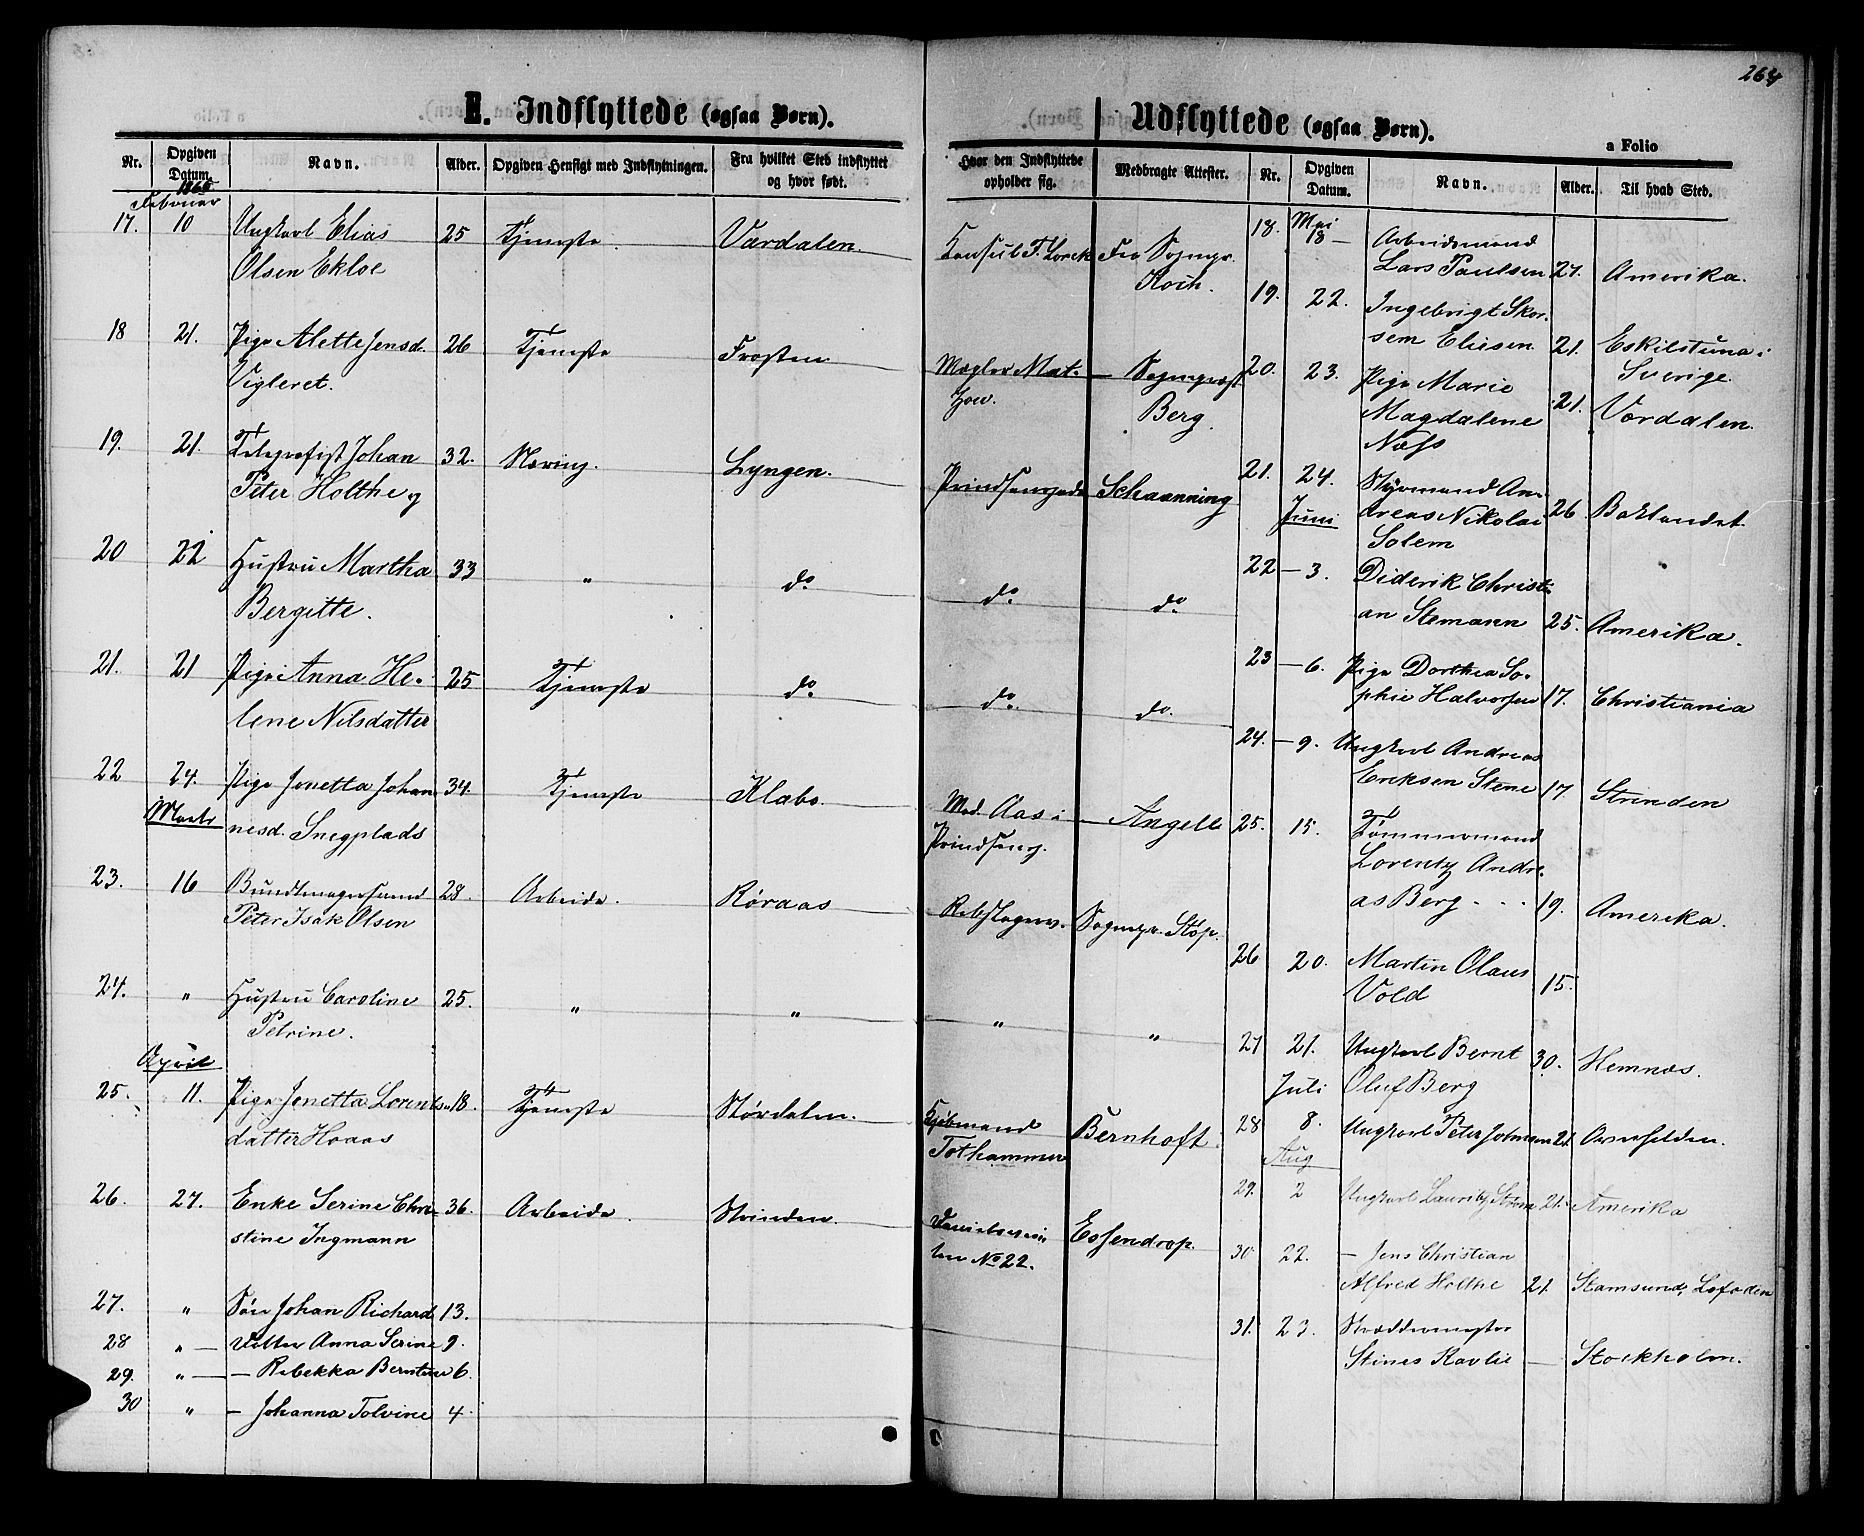 264
E. Indflyttede (ogsaa Børn).
Nr. Opgiven Datum. Navn. Alder. Opgiven Hensigt med Indflytningen. Fra hvilket Sted indflyttet og hvor født. Hvor den Indflyttede opholder sig. Medbragte Attester.
Februar
17. 10 Ungkarl Elias 25 Tjeneste. Værdalen. Konsul F. Lorck Fra Sognpr.
Olsen Ekloe Koch.
18 21. Pige Alette Jensd. 26 Tjeneste Frosten Mægler Mat- — Sognepræst
Vigleret. Berg.
19. 21. Telegrafist Johan 32. Næring. Lyngen. Prindsensgade Schaanning
Peter Holthe
20 22 Hustru Martha 33 " do do do
Bergitte.
21. 21 Pige Anna He- 25 Tjeneste do do do.
lene Nilsdatter
22 24. Pige Jonetta Johan 34. Tjeneste Klæbo. Mad. Aas i — Angell
Marts nesd. Snegplads Prindseng.
23. 16 Bundtmagersvend 28. Arbeide. Røraas Rebslagerv. Sognepr. Støp.
Peter Isak Olsen
24. " Hustru Caroline 25. " " " "
Petrine.
April
25. 11. Pige Jonetta Lorents- 18. Tjeneste Størdalen. Kjøbmand Bernhoft.
datter Hoaas Tothammer
26. 27. Enke Serine Chri- 36. Arbeide. Strinden. Essendrop.
stine Ingmann No 22.
27. " Søn Johan Richard 13.
28 " — Datter Anna Serine 9.
29. " — — Rebekka Berntine 6.
30 " — Johanna Tolvine 4
Udflyttede (ogsaa Børn).
a Folio
Nr. Opgiven Datum. Navn. Alder. Til hvad Sted.
Mai
18. 18 — Arbeidsmand
Lars Paulsen 27. Amerika.
19. 22. Ingebrigt Skor-
sem Eliesen 21. Eskilstuna i
Sverige.
20. 23. Pige Marie
Magdalene 21. Værdalen.
Næss
21. 24. Styrmand An-
Juni dreas Nikolai 26 Baklandet
Solem
22 — 3. Diderik Christi-
an Stemann 25. Amerika.
23 — 6. Pige Dorthea So-
phie Halvorsen 17. Christiania
24. — 9. Ungkarl Andreas
Eriksen Stene 17. Strinden
25. 15. Tømmermand
Lorentz Andre-
as Berg - - - 19. Amerika.
26 20. Martin Olaus
Vold 15.
27 21. Ungkarl Bernt 30. Hemnæs.
Juli Oluf Berg
28 8. Ungkarl Peter Johnsen 21. Arnefjelden.
Aug
29. 2 Ungkarl Lauritz Strøm 21. Amerika
30 22. — Jens Christian
Alfred Holthe 21. Stamsund, Lofoden
31. 23. Skræddermester
Stines Ravlie — Stockholm.